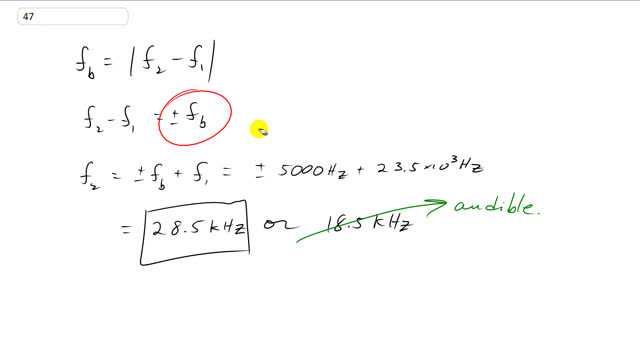 47
f_b = | f_2 - f_1 |
f_2 - f_1 = ± f_b
f_2 = ± f_b + f_1 = ± 5000 Hz + 23.5 × 10^3 Hz
= 28.5 kHz or 18.5 kHz audible.